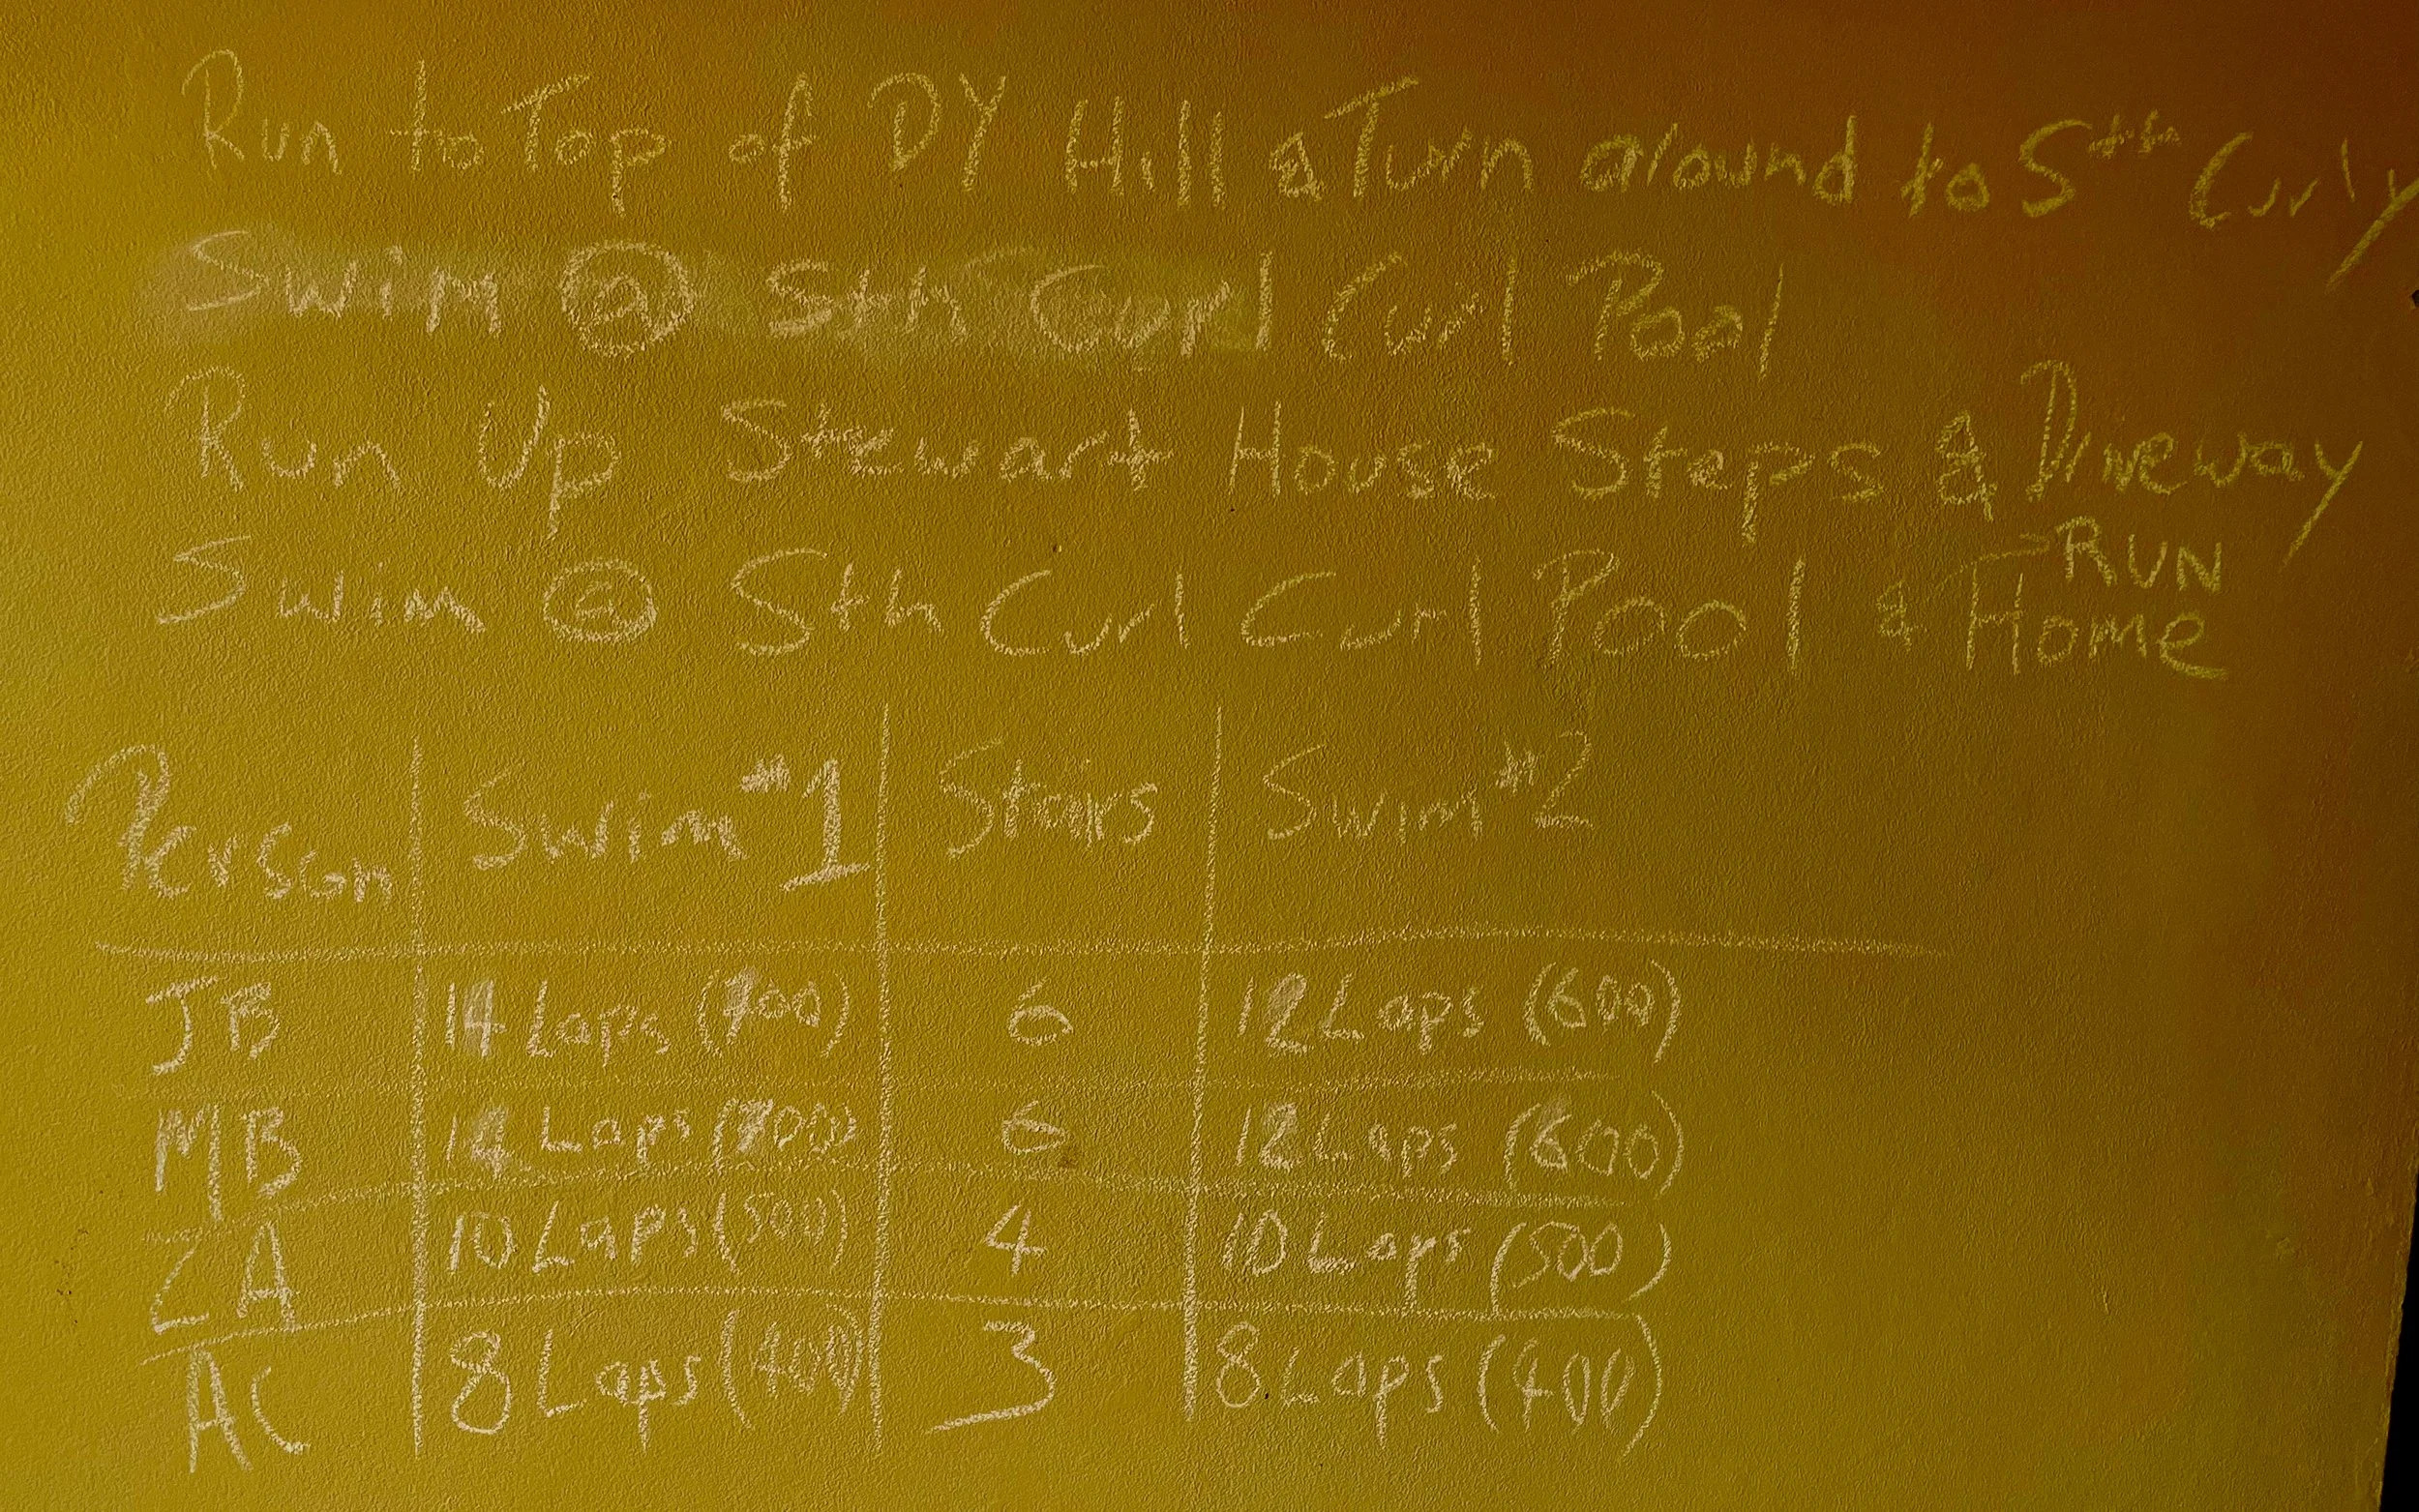 Run to Top of DY Hill & Turn around to Sth Curly
Swim @ Sth Curl Curl Pool
Run Up Stewart House Steps & Driveway
Swim @ Sth Curl Curl Pool & RUN Home
Person Swim #1 Stairs Swim #2
JB 14 Laps (700) 6 12 Laps (600)
MB 14 Laps (700) 6 12 Laps (600)
ZA 10 Laps (500) 4 10 Laps (500)
AC 8 Laps (400) 3 8 Laps (400)